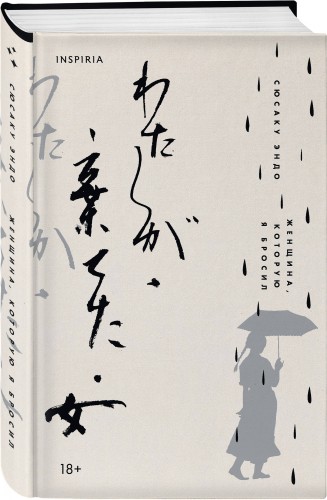 INSPIRIA
わたしが・
棄てた・女
СЮСАКУ ЭНДО
ЖЕНЩИНА,
КОТОРУЮ
Я БРОСИЛ
18+
СЮСАКУ ЭНДО
ЖЕНЩИНА, КОТОРУЮ Я БРОСИЛ
わたしが